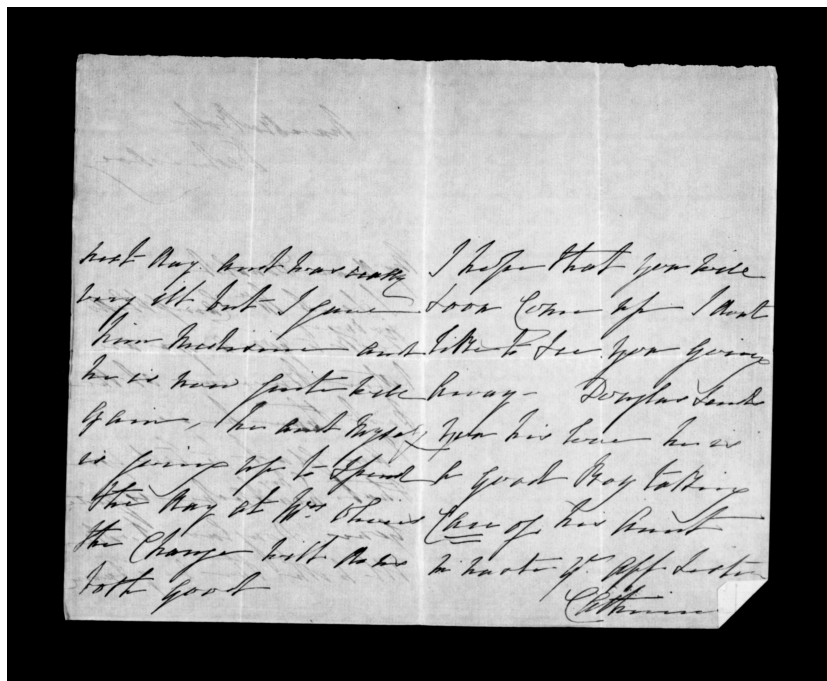 next Day and was really
very ill but I gave
him Medicine and
he is now quite well
again, he and myself
is going up to Spend
the Day at Mrs
the Change will do us
both good
I hope that you will
soon Come up I dont
like to See you going
away - Douglas Sends
you his love he is
a good Boy taking
Care of his Aunt
in haste yr Aff Sister
Catherine